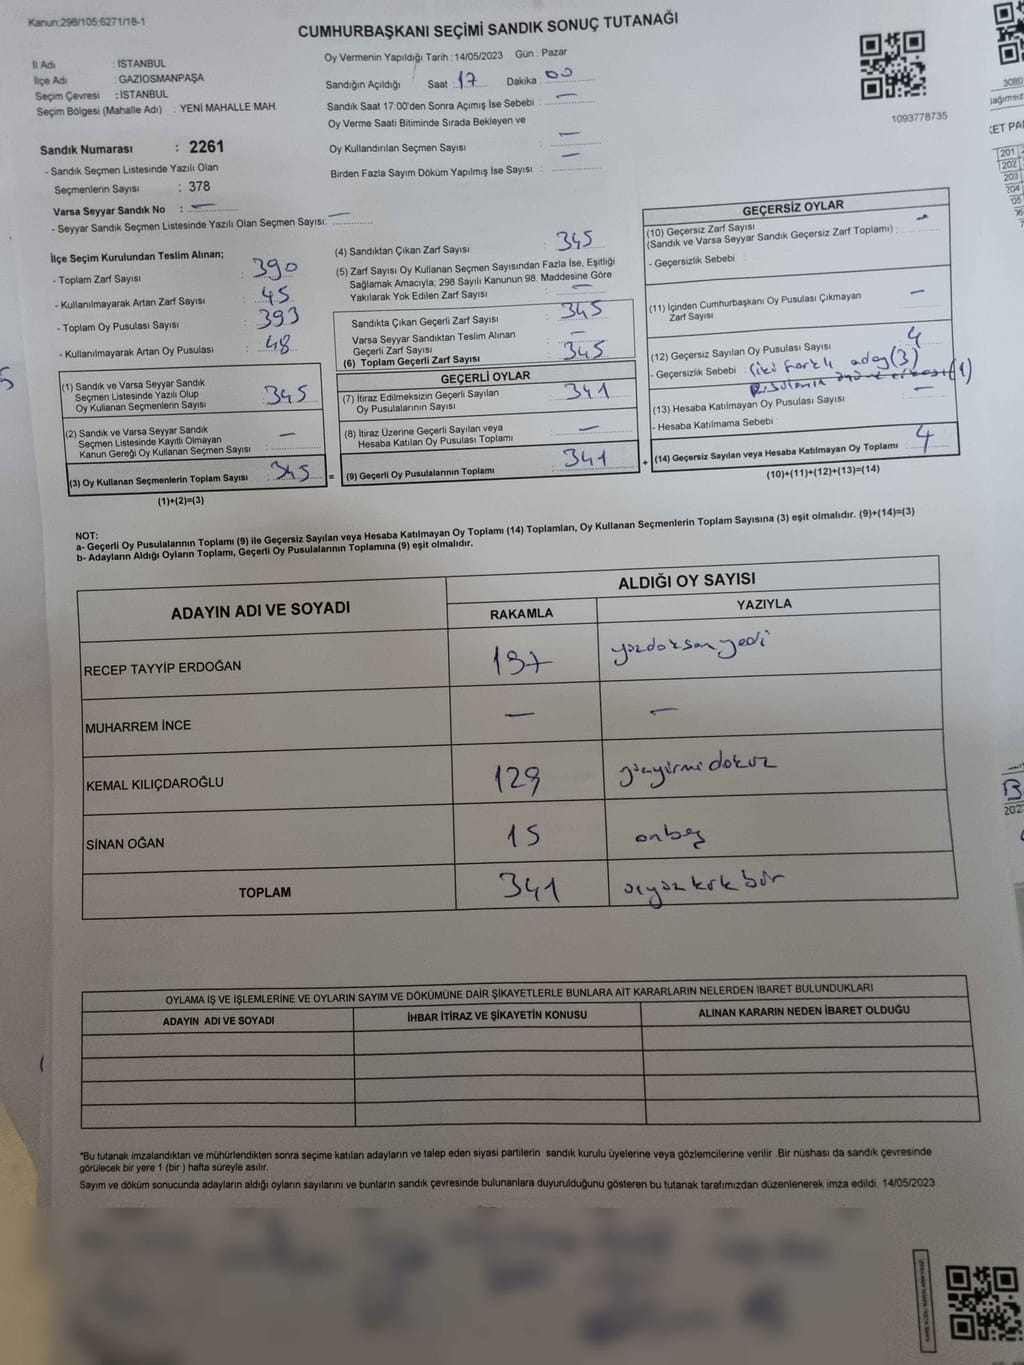 Kanun;298/105;6271/18-1
CUMHURBAŞKANI SEÇİMİ SANDIK SONUÇ TUTANAĞI
İl Adı : İSTANBUL
İlçe Adı : GAZİOSMANPAŞA
Seçim Çevresi : İSTANBUL
Seçim Bölgesi (Mahalle Adı) : YENİ MAHALLE MAH.
Sandık Numarası : 2261
- Sandık Seçmen Listesinde Yazılı Olan
Seçmenlerin Sayısı : 378
Varsa Seyyar Sandık No : —
- Seyyar Sandık Seçmen Listesinde Yazılı Olan Seçmen Sayısı: —
Oy Vermenin Yapıldığı Tarih : 14/05/2023 Gün : Pazar
Sandığın Açıldığı Saat : 17 Dakika : 00
Sandık Saat 17:00'den Sonra Açımış İse Sebebi : —
Oy Verme Saati Bitiminde Sırada Bekleyen ve
Oy Kullandırılan Seçmen Sayısı : —
Birden Fazla Sayım Döküm Yapılmış İse Sayısı : —
1093778735
İlçe Seçim Kurulundan Teslim Alınan;
- Toplam Zarf Sayısı : 390
- Kullanılmayarak Artan Zarf Sayısı : 45
- Toplam Oy Pusulası Sayısı : 393
- Kullanılmayarak Artan Oy Pusulası : 48
(1) Sandık ve Varsa Seyyar Sandık
Seçmen Listesinde Yazılı Olup
Oy Kullanan Seçmenlerin Sayısı : 345
(2) Sandık ve Varsa Seyyar Sandık
Seçmen Listesinde Kayıtlı Olmayan
Kanun Gereği Oy Kullanan Seçmen Sayısı : —
(3) Oy Kullanan Seçmenlerin Toplam Sayısı : 345 =
(1)+(2)=(3)
(4) Sandıktan Çıkan Zarf Sayısı : 345
(5) Zarf Sayısı Oy Kullanan Seçmen Sayısından Fazla İse, Eşitliği
Sağlamak Amacıyla; 298 Sayılı Kanunun 98. Maddesine Göre
Yakılarak Yok Edilen Zarf Sayısı : —
Sandıkta Çıkan Geçerli Zarf Sayısı : 345
Varsa Seyyar Sandıktan Teslim Alınan
Geçerli Zarf Sayısı : —
(6) Toplam Geçerli Zarf Sayısı : 345
GEÇERLİ OYLAR
(7) İtiraz Edilmeksizin Geçerli Sayılan
Oy Pusulalarının Sayısı : 341
(8) İtiraz Üzerine Geçerli Sayılan veya
Hesaba Katılan Oy Pusulası Toplamı : —
(9) Geçerli Oy Pusulalarının Toplamı : 341 +
GEÇERSİZ OYLAR
(10) Geçersiz Zarf Sayısı
(Sandık ve Varsa Seyyar Sandık Geçersiz Zarf Toplamı) : —
- Geçersizlik Sebebi :
(11) İçinden Cumhurbaşkanı Oy Pusulası Çıkmayan
Zarf Sayısı : —
(12) Geçersiz Sayılan Oy Pusulası Sayısı : 4
- Geçersizlik Sebebi : İki farklı aday (3)
(1)
(13) Hesaba Katılmayan Oy Pusulası Sayısı : —
- Hesaba Katılmama Sebebi :
(14) Geçersiz Sayılan veya Hesaba Katılmayan Oy Toplamı : 4
(10)+(11)+(12)+(13)=(14)
NOT:
a- Geçerli Oy Pusulalarının Toplamı (9) ile Geçersiz Sayılan veya Hesaba Katılmayan Oy Toplamı (14) Toplamları, Oy Kullanan Seçmenlerin Toplam Sayısına (3) eşit olmalıdır. (9)+(14)=(3)
b- Adayların Aldığı Oyların Toplamı, Geçerli Oy Pusulalarının Toplamına (9) eşit olmalıdır.
ADAYIN ADI VE SOYADI
ALDIĞI OY SAYISI
RAKAMLA YAZIYLA
RECEP TAYYİP ERDOĞAN 197 yüzdoksanyedi
MUHARREM İNCE — —
KEMAL KILIÇDAROĞLU 129 yüzyirmidokuz
SİNAN OĞAN 15 onbeş
TOPLAM 341 üçyüzkırkbir
OYLAMA İŞ VE İŞLEMLERİNE VE OYLARIN SAYIM VE DÖKÜMÜNE DAİR ŞİKAYETLERLE BUNLARA AİT KARARLARIN NELERDEN İBARET BULUNDUKLARI
ADAYIN ADI VE SOYADI İHBAR İTİRAZ VE ŞİKAYETİN KONUSU ALINAN KARARIN NEDEN İBARET OLDUĞU
*Bu tutanak imzalandıktan ve mühürlendikten sonra seçime katılan adayların ve talep eden siyasi partilerin sandık kurulu üyelerine veya gözlemcilerine verilir .Bir nüshası da sandık çevresinde
görülecek bir yere 1 (bir ) hafta süreyle asılır.
Sayım ve döküm sonucunda adayların aldığı oyların sayılarını ve bunların sandık çevresinde bulunanlara duyurulduğunu gösteren bu tutanak tarafımızdan düzenlenerek imza edildi. 14/05/2023
3080
201
202
203
204